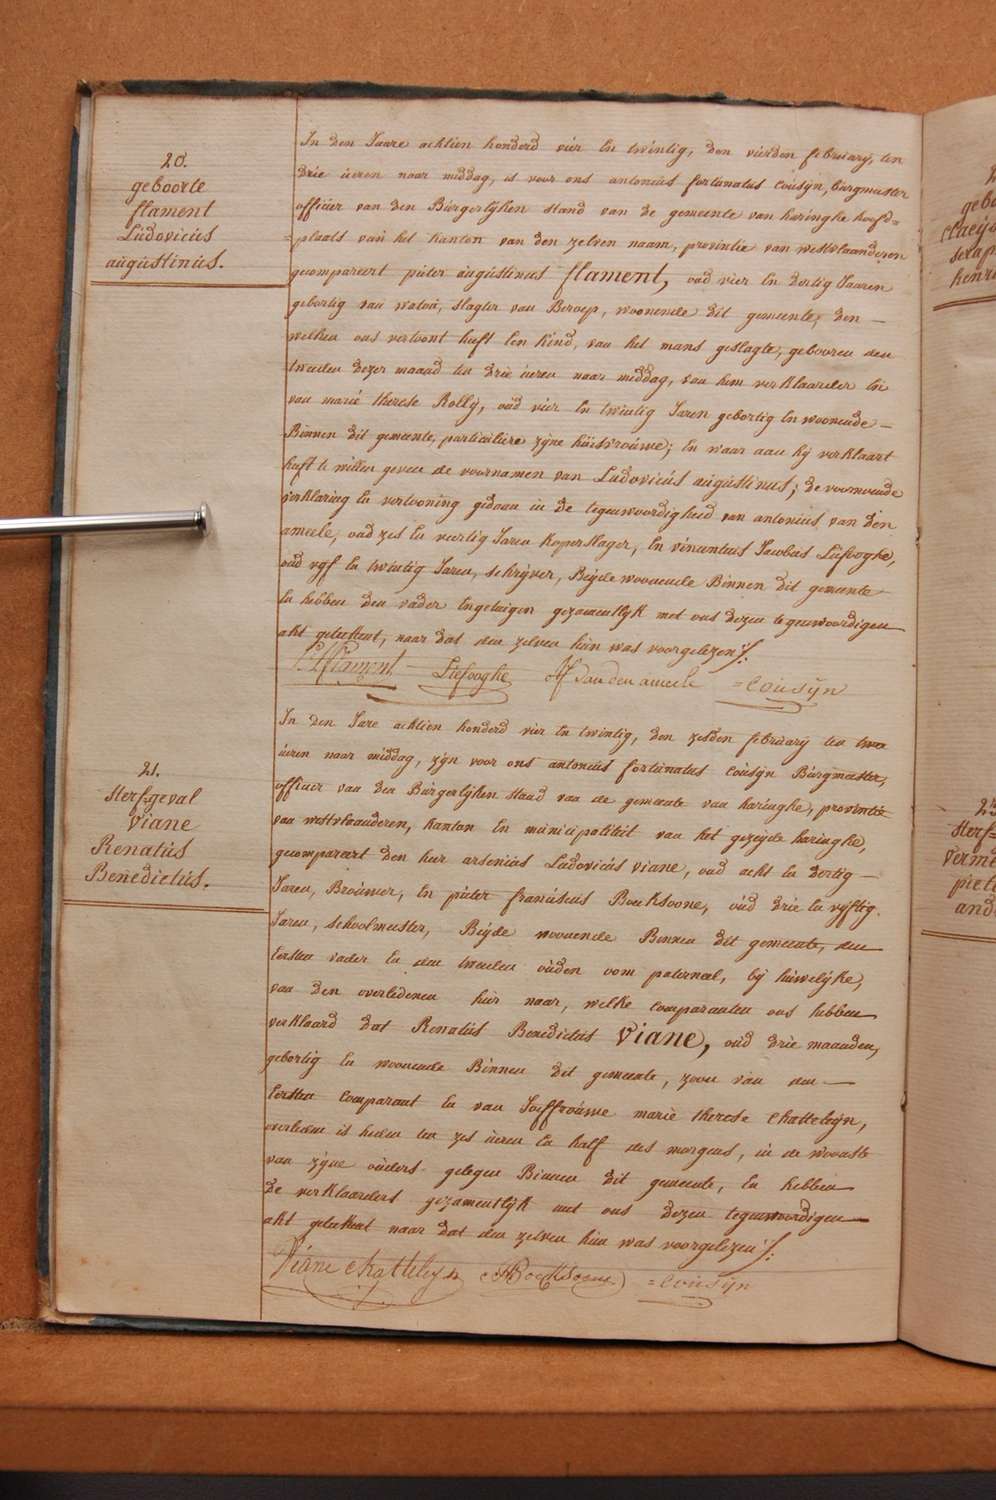 20.
geboorte
flament
Ludovicus
augustinus.
In den Jaare achtien honderd vier En twintig, den vierden february, ten
drie ueren naar middag, is voor ons antonius fortunatus Cousÿn, burgmeester
officier van den Burgerlÿken stand van de gemeente van haringhe hoofd=
=plaats van het kanton van den zelven naam, provintie van westvlaanderen
gecompareert pieter augustinus flament, oud vier En dertig Jaaren
gebortig van watou, slagter van Beroep, woonende dit gemeente, den —
welken ons vertoont heeft Een kind, van het mans geslagte, gebooren den
tweeden dezer maand ten drie ueren naar middag, van hem verklaarder En
van marie therese Rollÿ, oud vier En twintig Jaren gebortig En woonende —
Binnen dit gemeente, particuliere zÿne huisvrouwe; En waar aan hÿ verklaart
heeft te willen geven de voornamen van Ludovicus augustinus; de voornoemde
verklaring En vertooning gedaan in de tegenwoordigheid van antonius van den
ameele, oud zes En veertig Jaren koperslager, En vincentius Jacobus Liefooghe,
oud vyf En twintig Jaren, schrÿver, Beÿde woonende Binnen dit gemeente
En hebben den vader En getuigen gezamentlÿk met ons dezen tegenwoordigen
akt geteekent, naar dat den zelven hun was voorgelezen ./.
flament Liefooghe van den ameele =Cousÿn
21.
sterfgeval
Viane
Renatus
Benedictus.
In den Jare achtien honderd vier En twintig, den zesden february ten twee
ueren naar middag, zÿn voor ons antonius fortunatus Cousÿn Burgmeester,
officier van den Burgerlÿken stand van de gemeente van haringhe, provintie
van westvlaanderen, kanton En municipaliteit van het gezeÿde haringhe,
gecompareert den heer arsenius Ludovicus viane, oud acht En dertig —
Jaren, Brouwer, En pieter franciscus Boeksoone, oud drie En vyftig
Jaren, schoolmeester, Beÿde woonende Binnen dit gemeente, den
Eersten vader En den tweeden ouden oom paterneel, bÿ huwelÿke,
van den overledenen hier naar, welke comparanten ons hebben
verklaard dat Renatus Benedictus Viane, oud drie maanden,
gebortig En woonende Binnen dit gemeente, zoon van den —
Eersten comparant En van Joeffrouwe marie therese chattelÿn,
overleden is heden ten zes ueren En half des morgens, in de woonste
van zÿne ouders gelegen Binnen dit gemeente, En hebben
de verklaarders gezamentlÿk met ons dezen tegenwoordigen
akt geteekent naar dat den zelven hun was voorgelezen ./.
Viane chattelÿn Boeksoone =Cousÿn